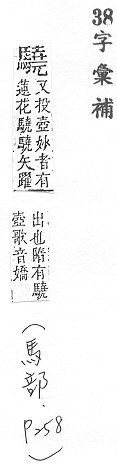 38字彙補
驍
又投壺妙者有
蓮花驍驍矢躍
出也隋有驍
壺歌音嬌
(馬部.
P258)